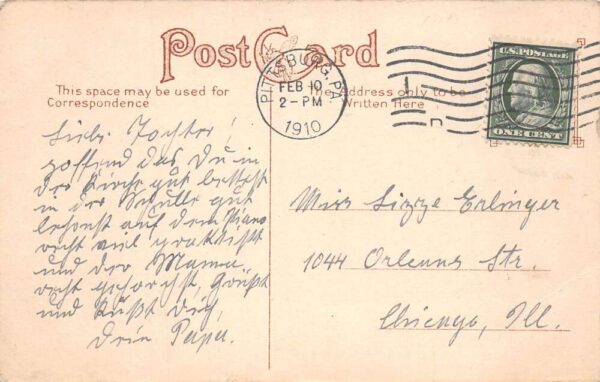 Post Card
This space may be used for
Correspondence
The Address only to be
Written Here
PITTSBURG, PA.
FEB 10
2-PM
1910
D
U.S. POSTAGE
ONE CENT
Liebe Tochter!
hoffend das Du in
der Kirche gut betest
in der Schulle gut
lehrnst auf dem Piano
recht viel practisist
und der Mama
recht gehorchst, Grüßt
und Küßt Dich,
Dein Papa.
Miss Lizzie Erlinger
1044 Orleans Str.
Chicago, Ill.